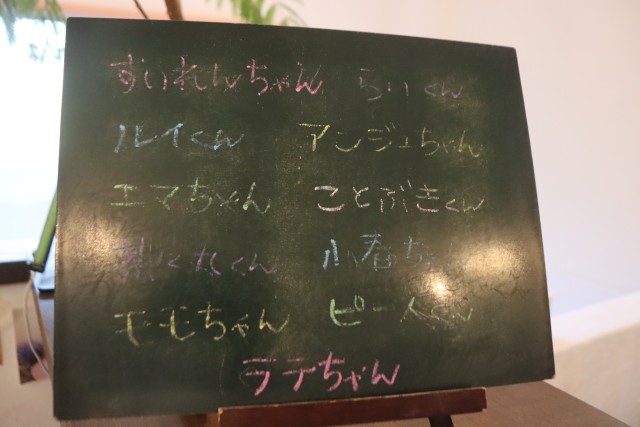 すいれんちゃん らいくん
ルイくん アンジュちゃん
エマちゃん ことぶきくん
くん 小春ちゃん
モモちゃん ピースくん
ラテちゃん